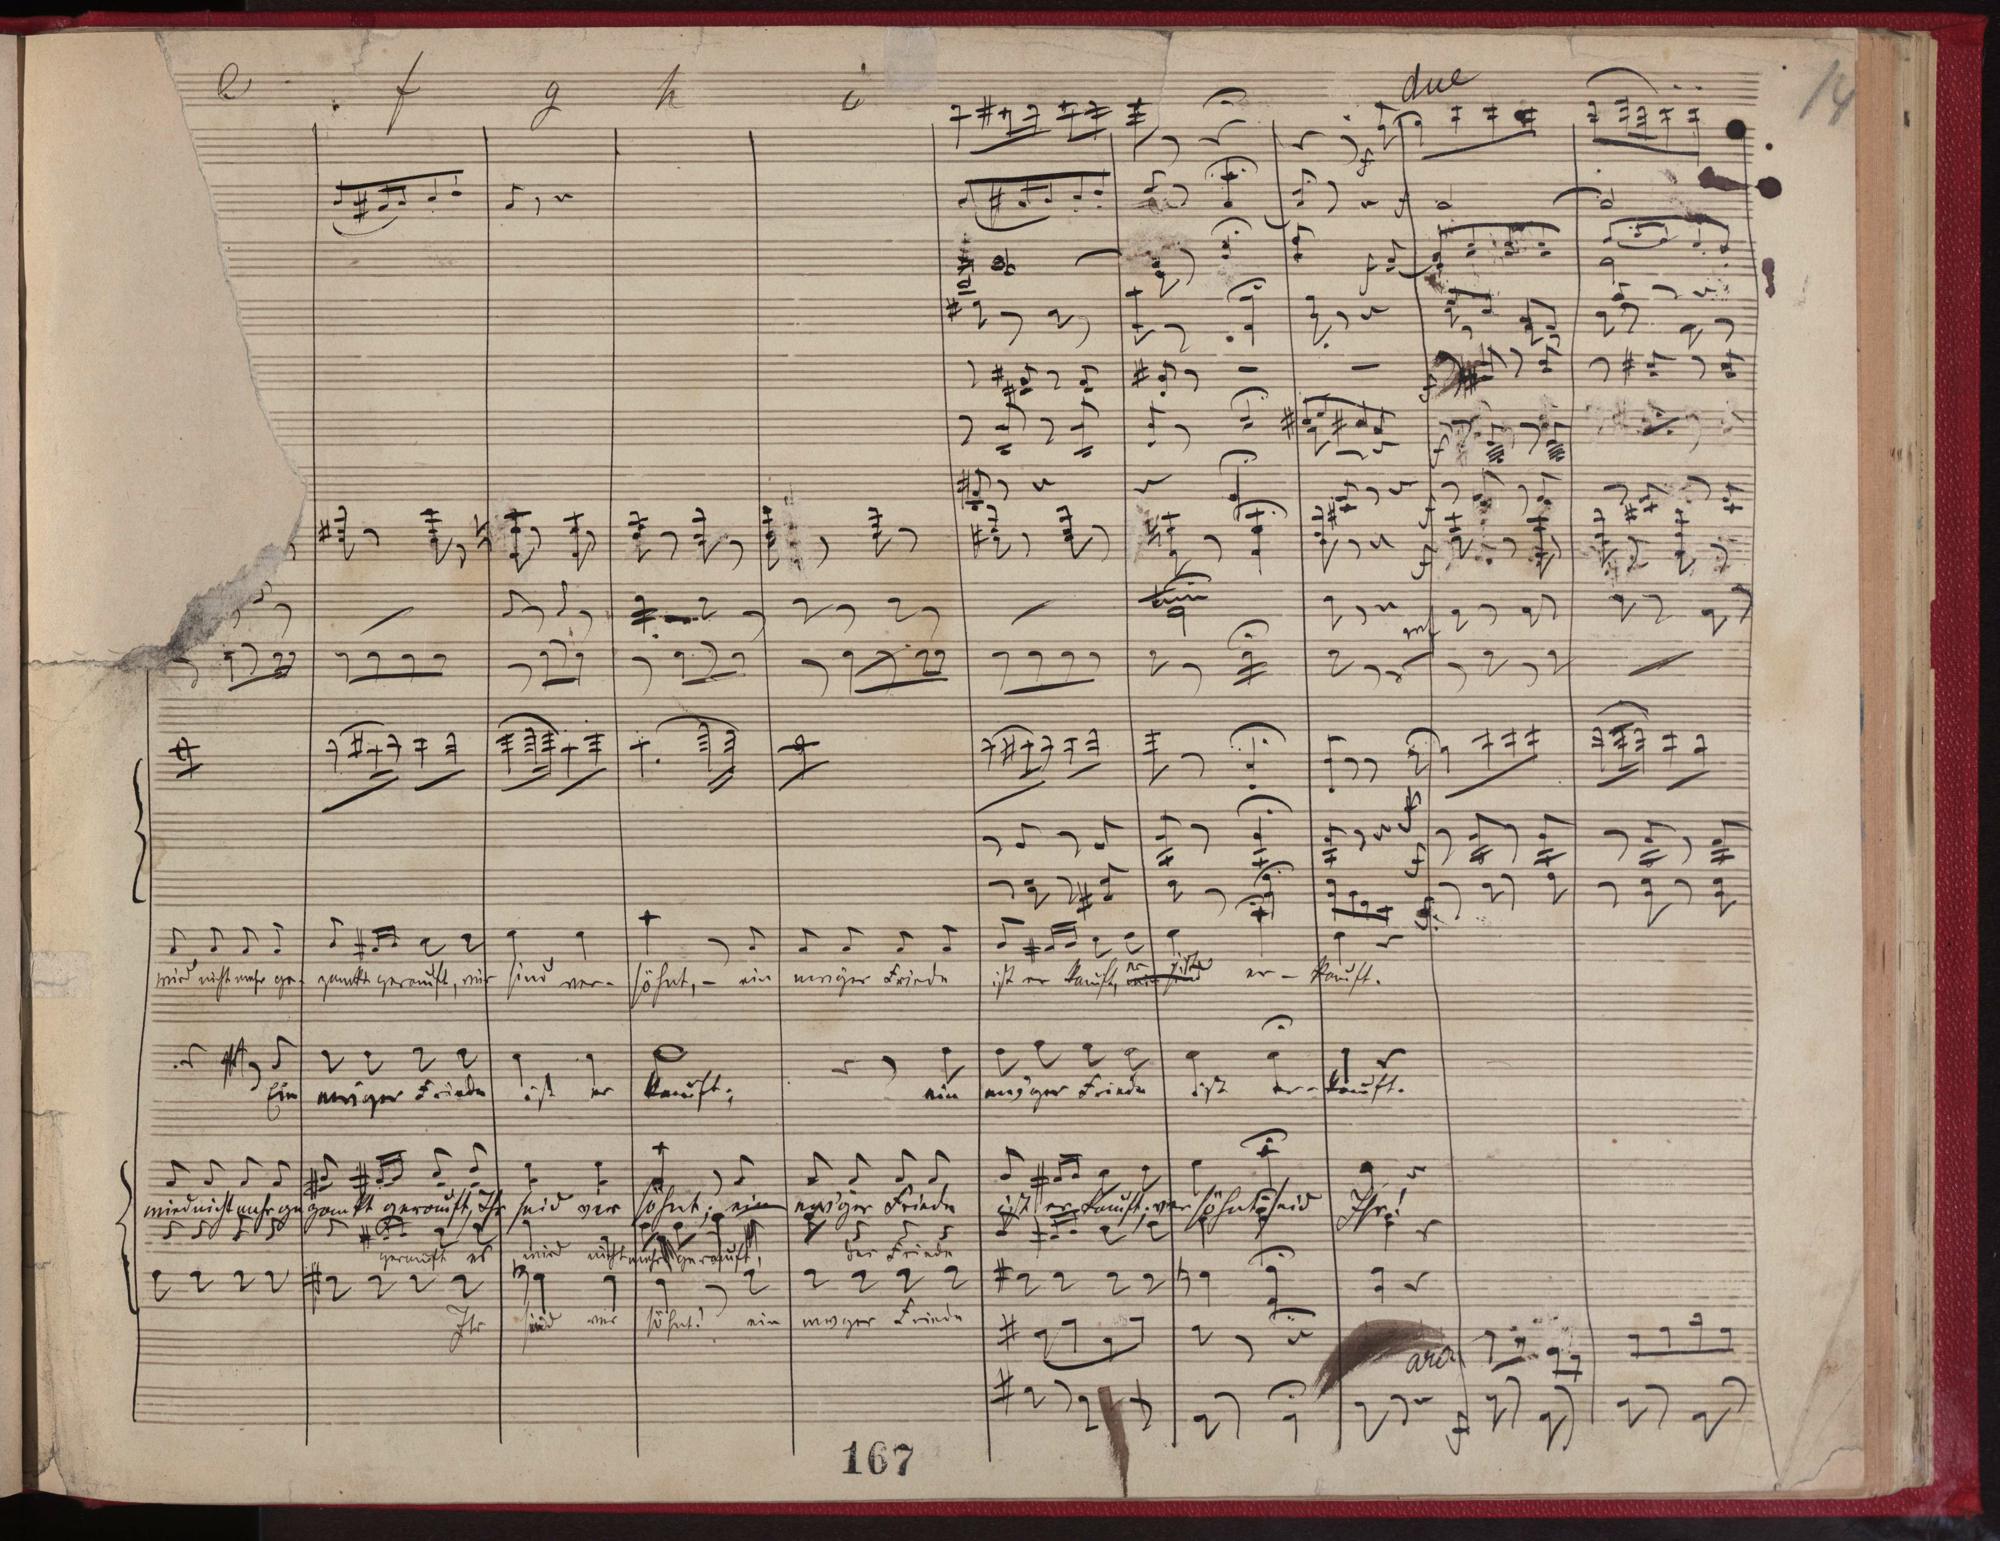 e f g h i due 14
wird nicht mehr ge- zankt gerauft, wir sind ver- söhnt, – ein ewiger Friede ist er kauft, er – kauft.
Ein ewiger Friede ist er kauft; ein ewiger Friede ist er- kauft.
wird nicht mehr ge zankt gerauft, Ihr seid ver söhnt; ein ewiger Friede ist er kauft, ver söhnt seid Ihr!
gerauft es wird nicht mehr gerauft, der Friede
Ihr seid ver söhnt! ein ewiger Friede
arco
167